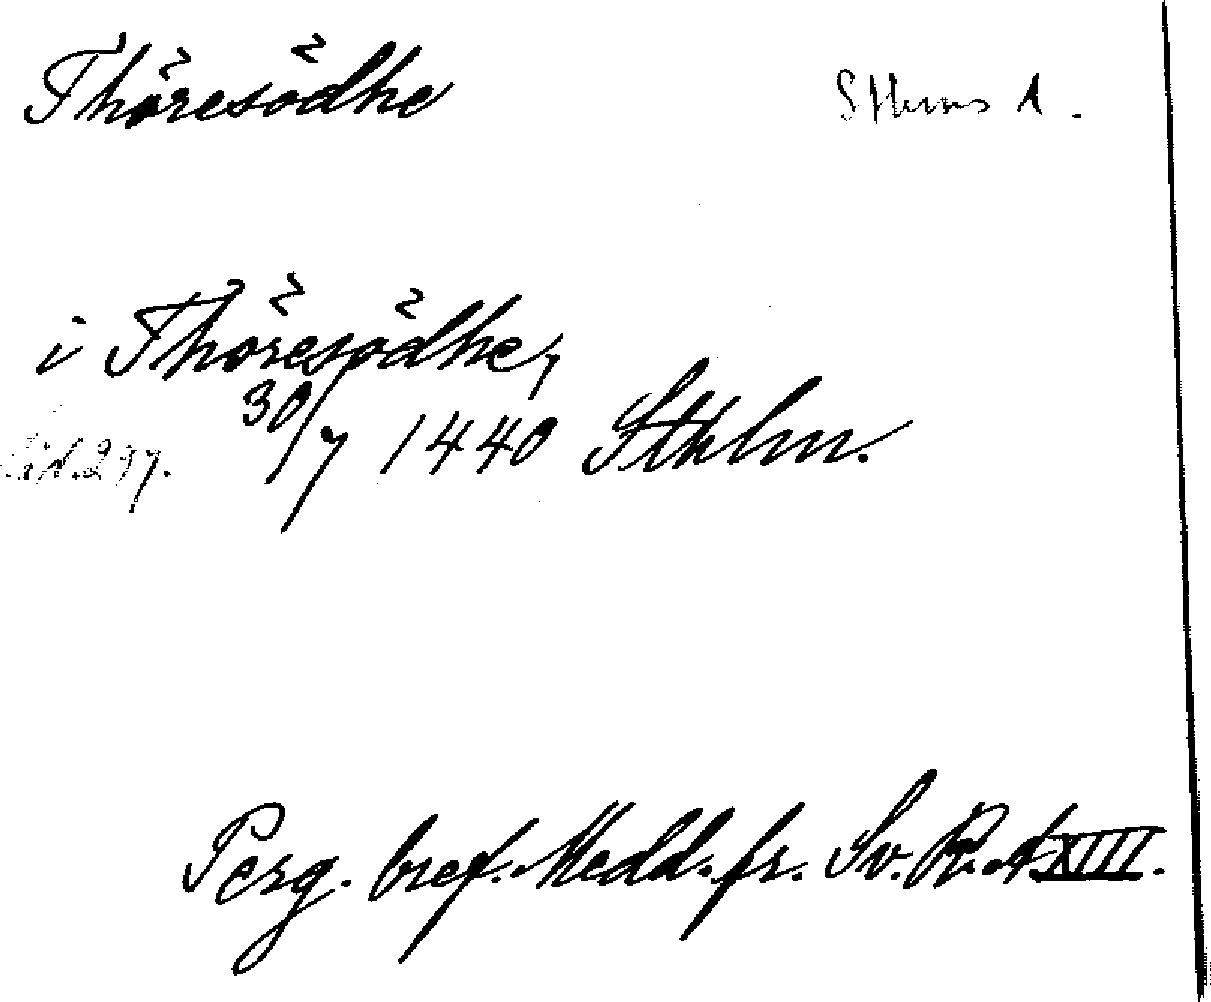 Thöresödhe Sthms A.
i Thöresödhe,
30/7 1440 Sthlm.
297.
Perg. bref. Medd. fr. Sv. R. A. XIII.